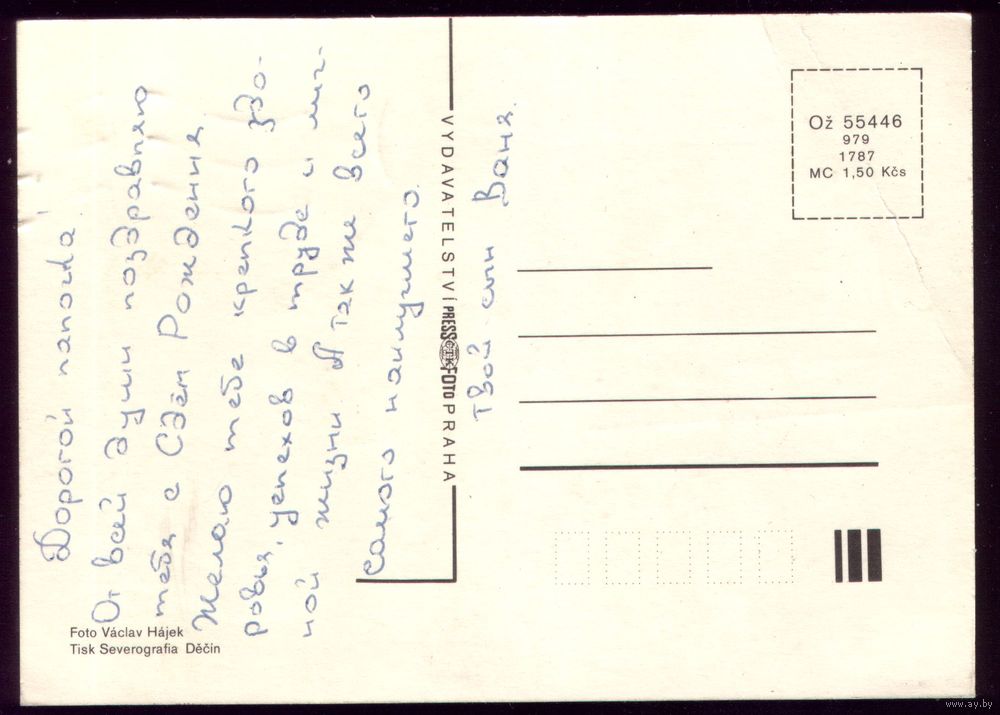 Дорогой папочка!
От всей души поздравляю
тебя с Сдём Рождения
Желаю тебе крепкого здо-
ровья, успехов в труде и лич-
ной жизни А так же всего
самого наилучшего.
Твой сын Ваня.
VYDAVATELSTVÍ PRESSFOTO PRAHA
ČTK
Ož 55446
979
1787
MC 1,50 Kčs
Foto Václav Hájek
Tisk Severografia Děčín
www.ay.by